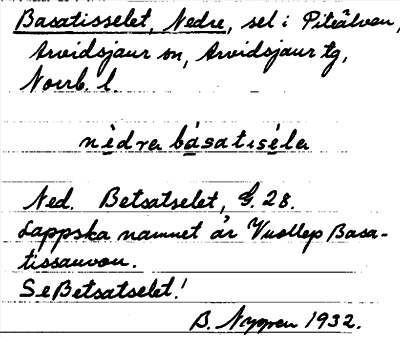 Basatisselet, Nedre, sel i Piteälven,
Arvidsjaur sn, Arvidsjaur tg,
Norrb. l.
nèdra básatisélẹ
Ned. Betsatselet, G. 28.
Lappska namnet är Vuollep Basa-
tissauvon.
Se Betsatselet!
B. Nygren 1932.